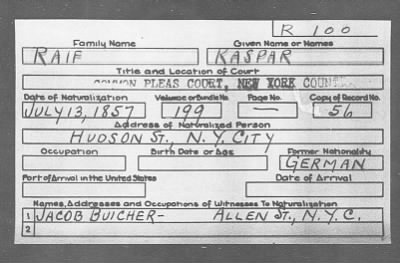 R 100
Family Name Given Name or Names
RAIF KASPAR
Title and Location of Court
COMMON PLEAS COURT, NEW YORK COUN
Date of Naturalization Volume or Bundle No. Page No. Copy of Record No.
JULY 13, 1857 199 — 56
Address of Naturalized Person
HUDSON ST., N.Y. CITY
Occupation Birth Date or Age Former Nationality
GERMAN
Port of Arrival in the United States Date of Arrival
Names, Addresses and Occupations of Witnesses To Naturalization
1 JACOB BUICHER- ALLEN ST., N.Y.C.
2